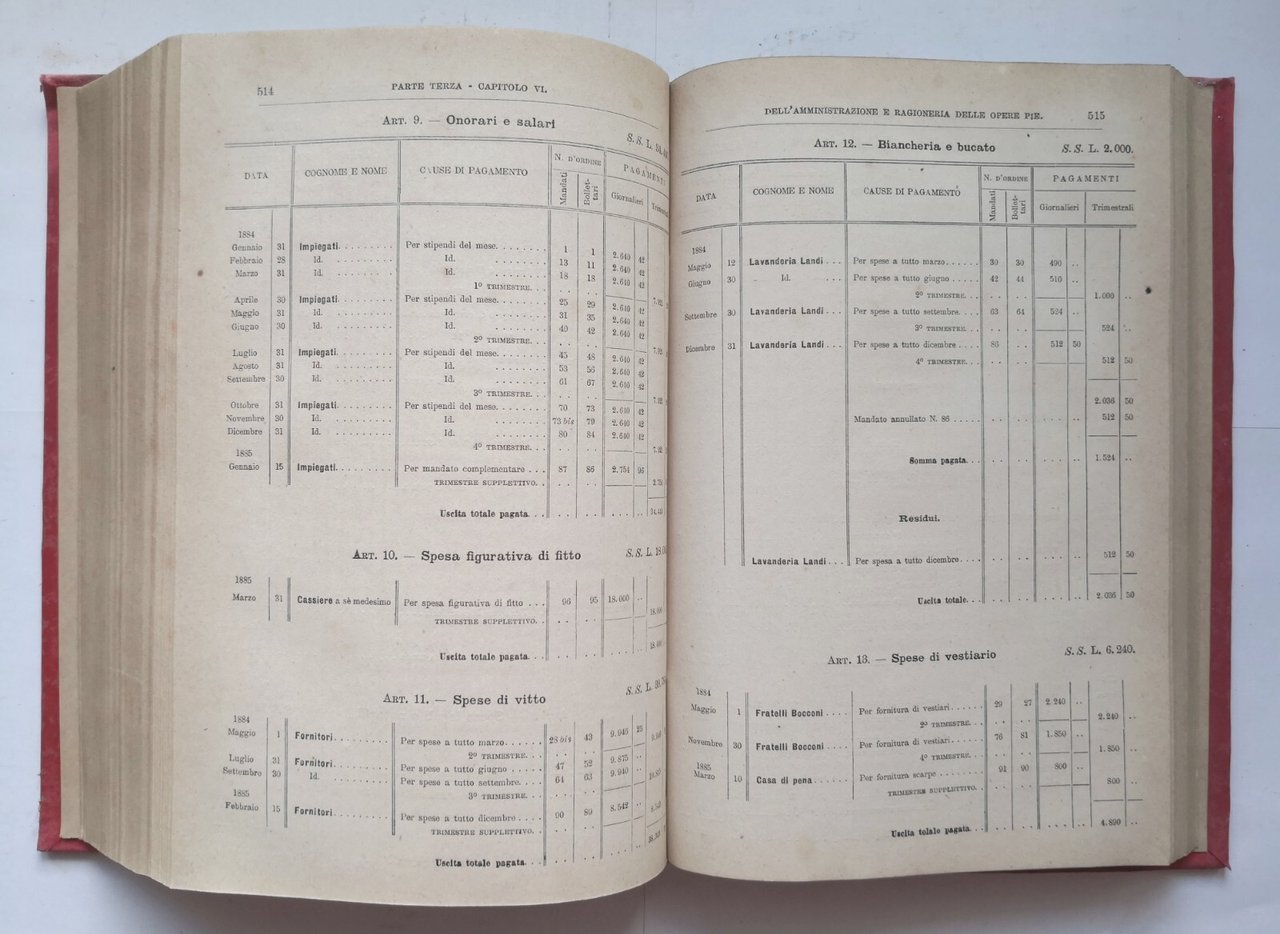 514 PARTE TERZA - CAPITOLO VI.
ART. 9. — Onorari e salari S. S. L.
DATA COGNOME E NOME CAUSE DI PAGAMENTO N. D'ORDINE Mandati Bollet-tari PAGAMENTI Giornalieri
1884
Gennaio 31 Impiegati. . . . . . . . . Per stipendi del mese. . . . . . . . 1 1 2.640 42
Febbraio 28 Id. . . . . . . . . Id. . . . . . . . 13 11 2.640 42
Marzo 31 Id. . . . . . . . . Id. . . . . . . . 18 18 2.640 42
1º TRIMESTRE. . . . . . .
Aprile 30 Impiegati. . . . . . . . . Per stipendi del mese. . . . . . . . 25 29 2.640 42
Maggio 31 Id. . . . . . . . . Id. . . . . . . . 31 35 2.640 42
Giugno 30 Id. . . . . . . . . Id. . . . . . . . 40 42 2.640 42
2º TRIMESTRE. . . . . . .
Luglio 31 Impiegati. . . . . . . . . Per stipendi del mese. . . . . . . . 45 48 2.640 42
Agosto 31 Id. . . . . . . . . Id. . . . . . . . 53 56 2.640 42
Settembre 30 Id. . . . . . . . . Id. . . . . . . . 61 67 2.640 42
3º TRIMESTRE. . . . . . .
Ottobre 31 Impiegati. . . . . . . . . Per stipendi del mese. . . . . . . . 70 73 2.640 42
Novembre 30 Id. . . . . . . . . Id. . . . . . . . 73 bis 79 2.640 42
Dicembre 31 Id. . . . . . . . . Id. . . . . . . . 80 84 2.640 42
4º TRIMESTRE. . . . . . .
1885
Gennaio 15 Impiegati. . . . . . . . . Per mandato complementare . . . 87 86 2.754 96
TRIMESTRE SUPPLETTIVO. . . . . .
Uscita totale pagata. . . . . . . . . . . . .
ART. 10. — Spesa figurativa di fitto S. S. L.
1885
Marzo 31 Cassiere a sè medesimo Per spesa figurativa di fitto . . . 96 95 18.000 . .
TRIMESTRE SUPPLETTIVO. . . . . .
Uscita totale pagata. . . . . . . . . . . . .
ART. 11. — Spese di vitto S. S. L.
1884
Maggio 1 Fornitori. . . . . . . . . Per spese a tutto marzo. . . . . . 28 bis 43 9.946 25
2º TRIMESTRE. . . . . . .
Luglio 31 Fornitori. . . . . . . . . Per spese a tutto giugno . . . . . 47 52 9.875 . .
Settembre 30 Id. . . . . . . . . Per spese a tutto settembre. . . . 64 63 9.940 . .
3º TRIMESTRE. . . . . . .
1885
Febbraio 15 Fornitori. . . . . . . . . Per spese a tutto dicembre . . . . 90 89 8.542 . .
TRIMESTRE SUPPLETTIVO. . . . . .
Uscita totale pagata. . . . . . . . . . . . .
DELL'AMMINISTRAZIONE E RAGIONERIA DELLE OPERE PIE. 515
ART. 12. — Biancheria e bucato S. S. L. 2.000.
DATA COGNOME E NOME CAUSE DI PAGAMENTO N. D'ORDINE Mandati Bollet-tari PAGAMENTI Giornalieri Trimestrali
1884
Maggio 12 Lavanderia Landi . . . Per spese a tutto marzo. . . . . . 30 30 490 . .
Giugno 30 Id. . . . Per spese a tutto giugno . . . . . 42 44 510 . .
2º TRIMESTRE. . . . . . . 1.000 . .
Settembre 30 Lavanderia Landi . . . Per spese a tutto settembre. . . . 63 64 524 . .
3º TRIMESTRE. . . . . . . 524 . .
Dicembre 31 Lavanderia Landi . . . Per spese a tutto dicembre . . . . 86 . . 512 50
4º TRIMESTRE. . . . . . . 512 50
2.036 50
Mandato annullato N. 86 . . . . . . . . . . . . . . . 512 50
Somma pagata. . . . . . . . . . . . . 1.524 . .
Residui.
Lavanderia Landi . . . Per spesa a tutto dicembre. . . . . . . . . . . . . . 512 50
Uscita totale. . . . . . . . . . . . . 2.036 50
ART. 13. — Spese di vestiario S. S. L. 6.240.
1884
Maggio 1 Fratelli Bocconi . . . . Per fornitura di vestiari. . . . . . 29 27 2.240 . .
2º TRIMESTRE. . . . . . . 2.240 . .
Novembre 30 Fratelli Bocconi . . . . Per fornitura di vestiari. . . . . . 76 81 1.850 . .
4º TRIMESTRE. . . . . . . 1.850 . .
1885
Marzo 10 Casa di pena . . . . . . Per fornitura scarpe . . . . . . . . 91 90 800 . .
TRIMESTRE SUPPLETTIVO. . . . . . 800 . .
Uscita totale pagata. . . . . . . . . . . . . 4.890 . .